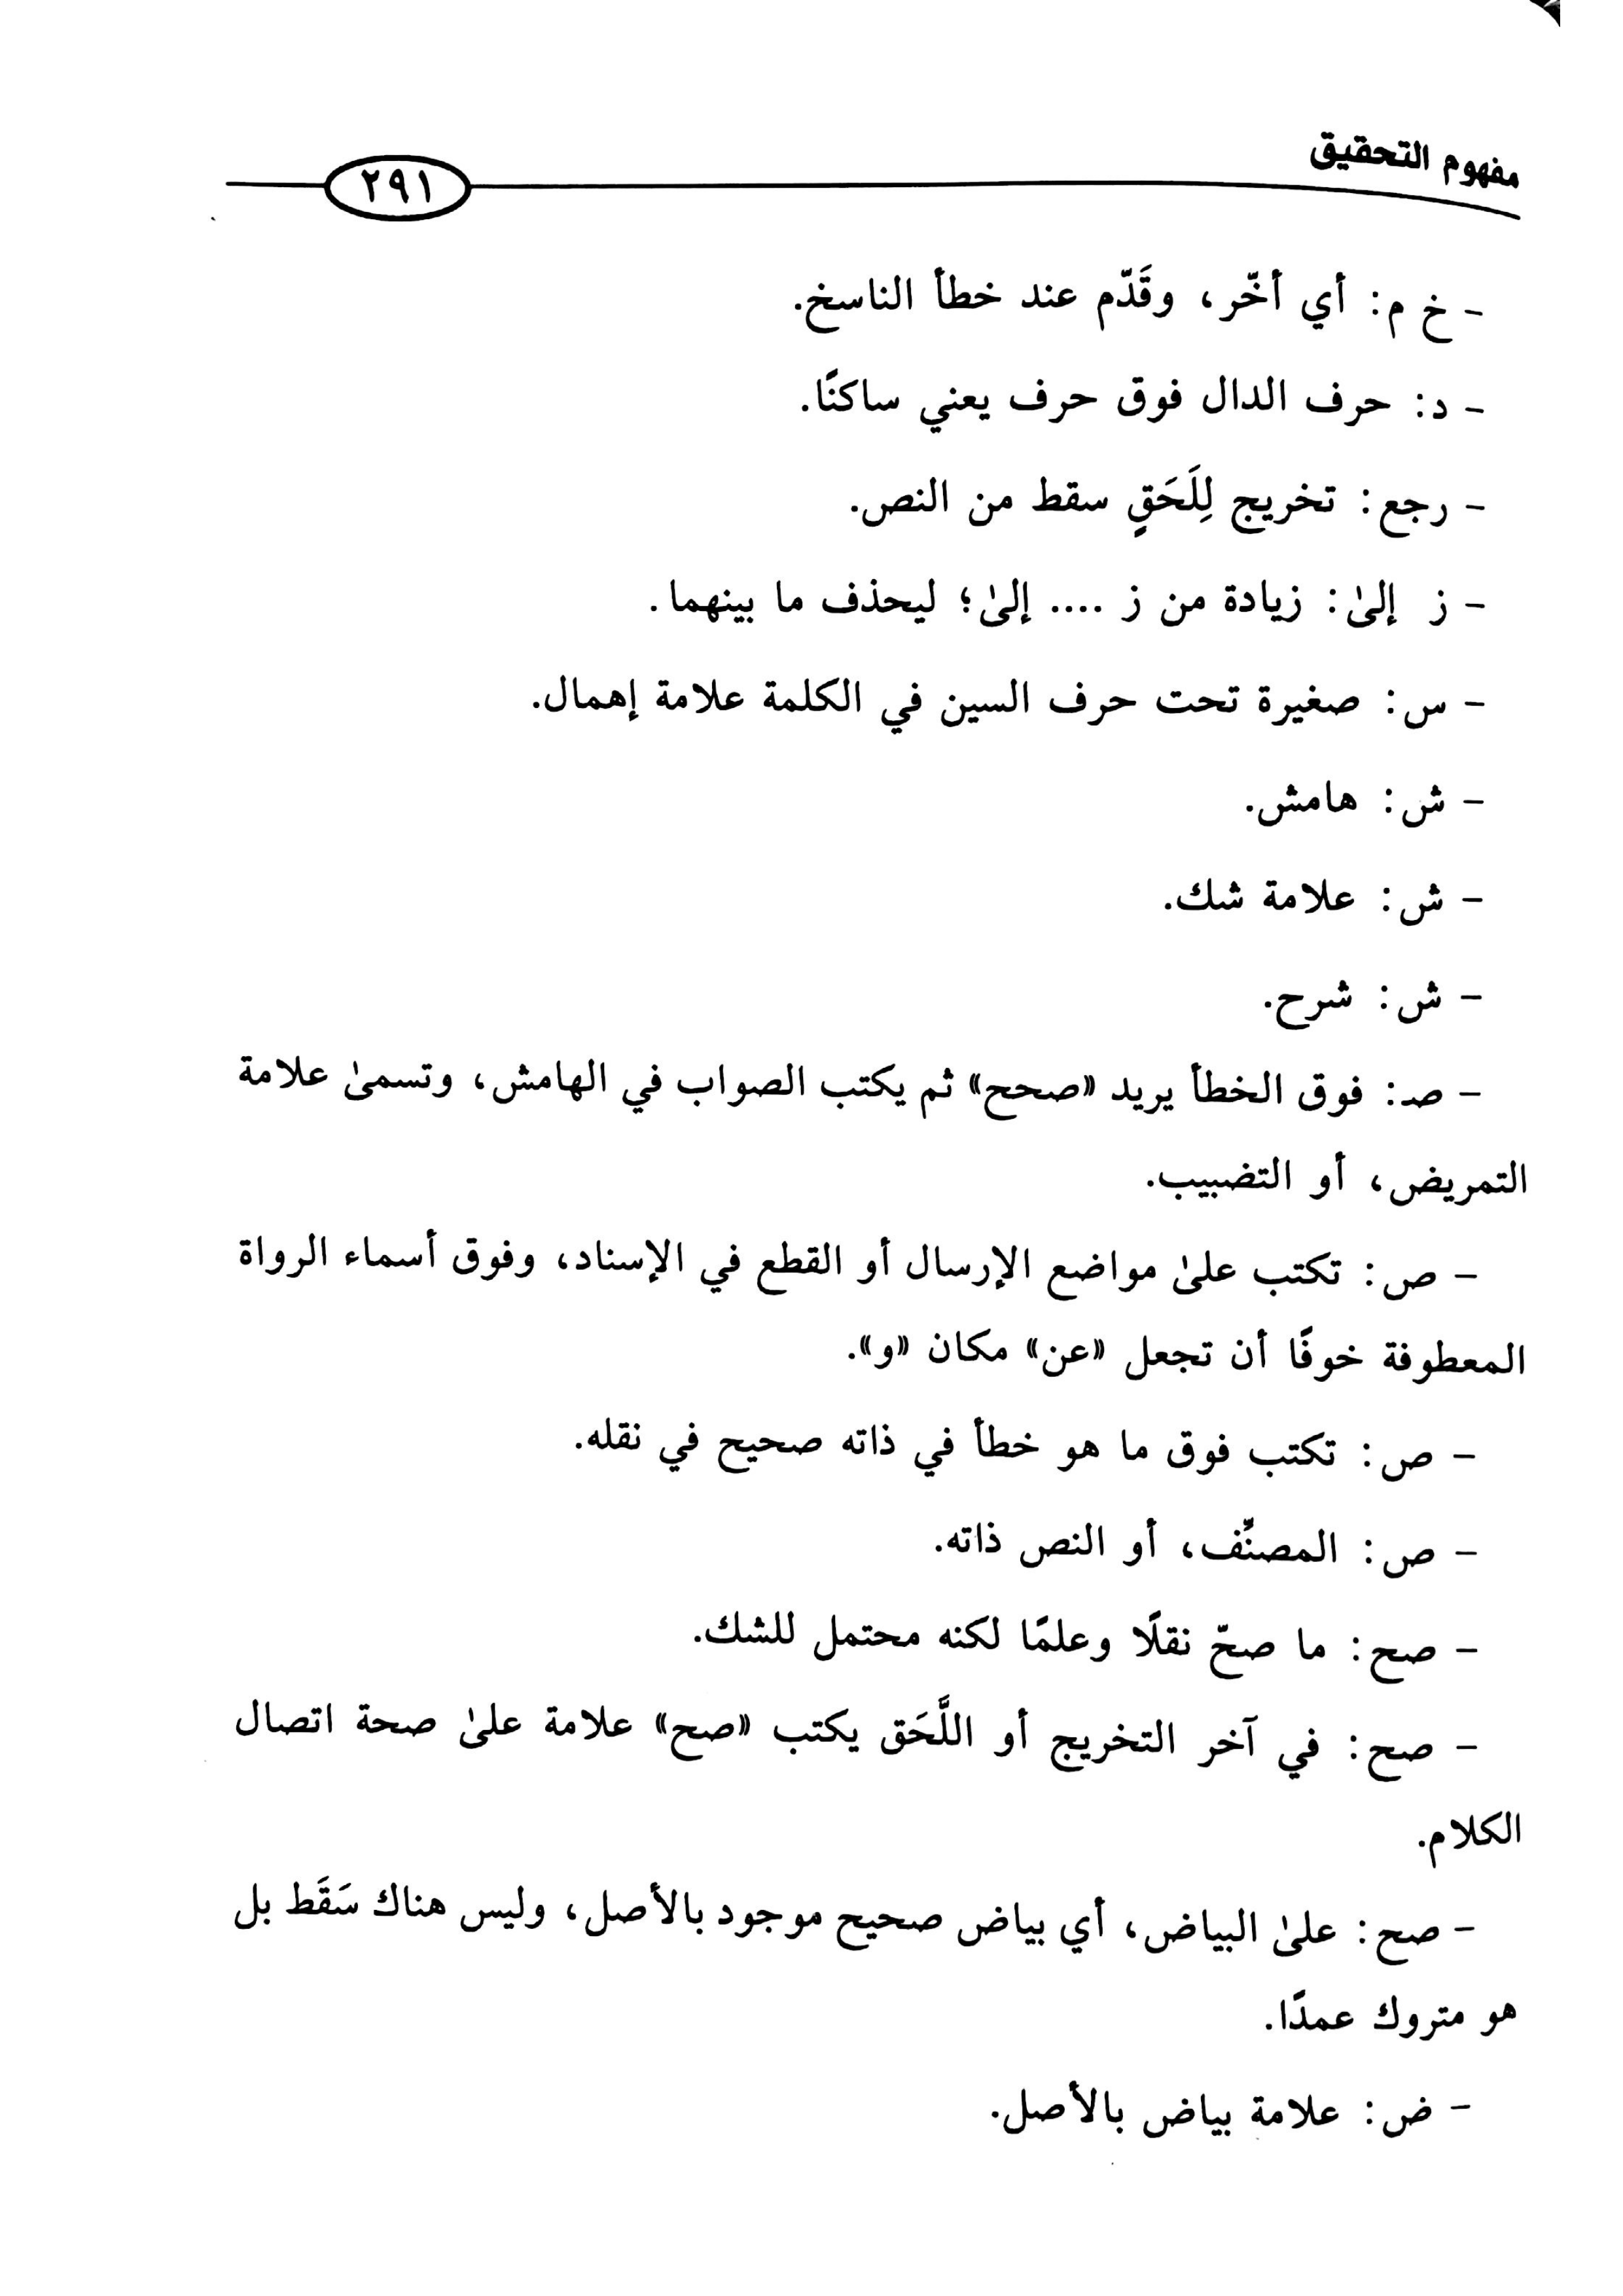 مفهوم التحقيق
٢٩١
- خ م: أي أخّر، وقَدّم عند خطأ الناسخ.
- د: حرف الدال فوق حرف يعني ساكنًا.
- رجع: تخريج لِلَحَقٍ سقط من النص.
- ز إلىٰ: زيادة من ز .... إلىٰ؛ ليحذف ما بينهما.
- س: صغيرة تحت حرف السين في الكلمة علامة إهمال.
- ش: هامش.
- ش: علامة شك.
- ش: شرح.
- صـ: فوق الخطأ يريد «صحح» ثم يكتب الصواب في الهامش، وتسمىٰ علامة
التمريض، أو التضبيب.
- ص: تكتب علىٰ مواضع الإرسال أو القطع في الإسناد، وفوق أسماء الرواة
المعطوفة خوفًا أن تجعل «عن» مكان «و».
- ص: تكتب فوق ما هو خطأ في ذاته صحيح في نقله.
- ص: المصنِّف، أو النص ذاته.
- صح: ما صحّ نقلًا وعلمًا لكنه محتمل للشك.
- صح: في آخر التخريج أو اللَّحَق يكتب «صح» علامة علىٰ صحة اتصال
الكلام.
- صح: علىٰ البياض، أي بياض صحيح موجود بالأصل، وليس هناك سَقَط بل
هو متروك عمدًا.
- ض: علامة بياض بالأصل.